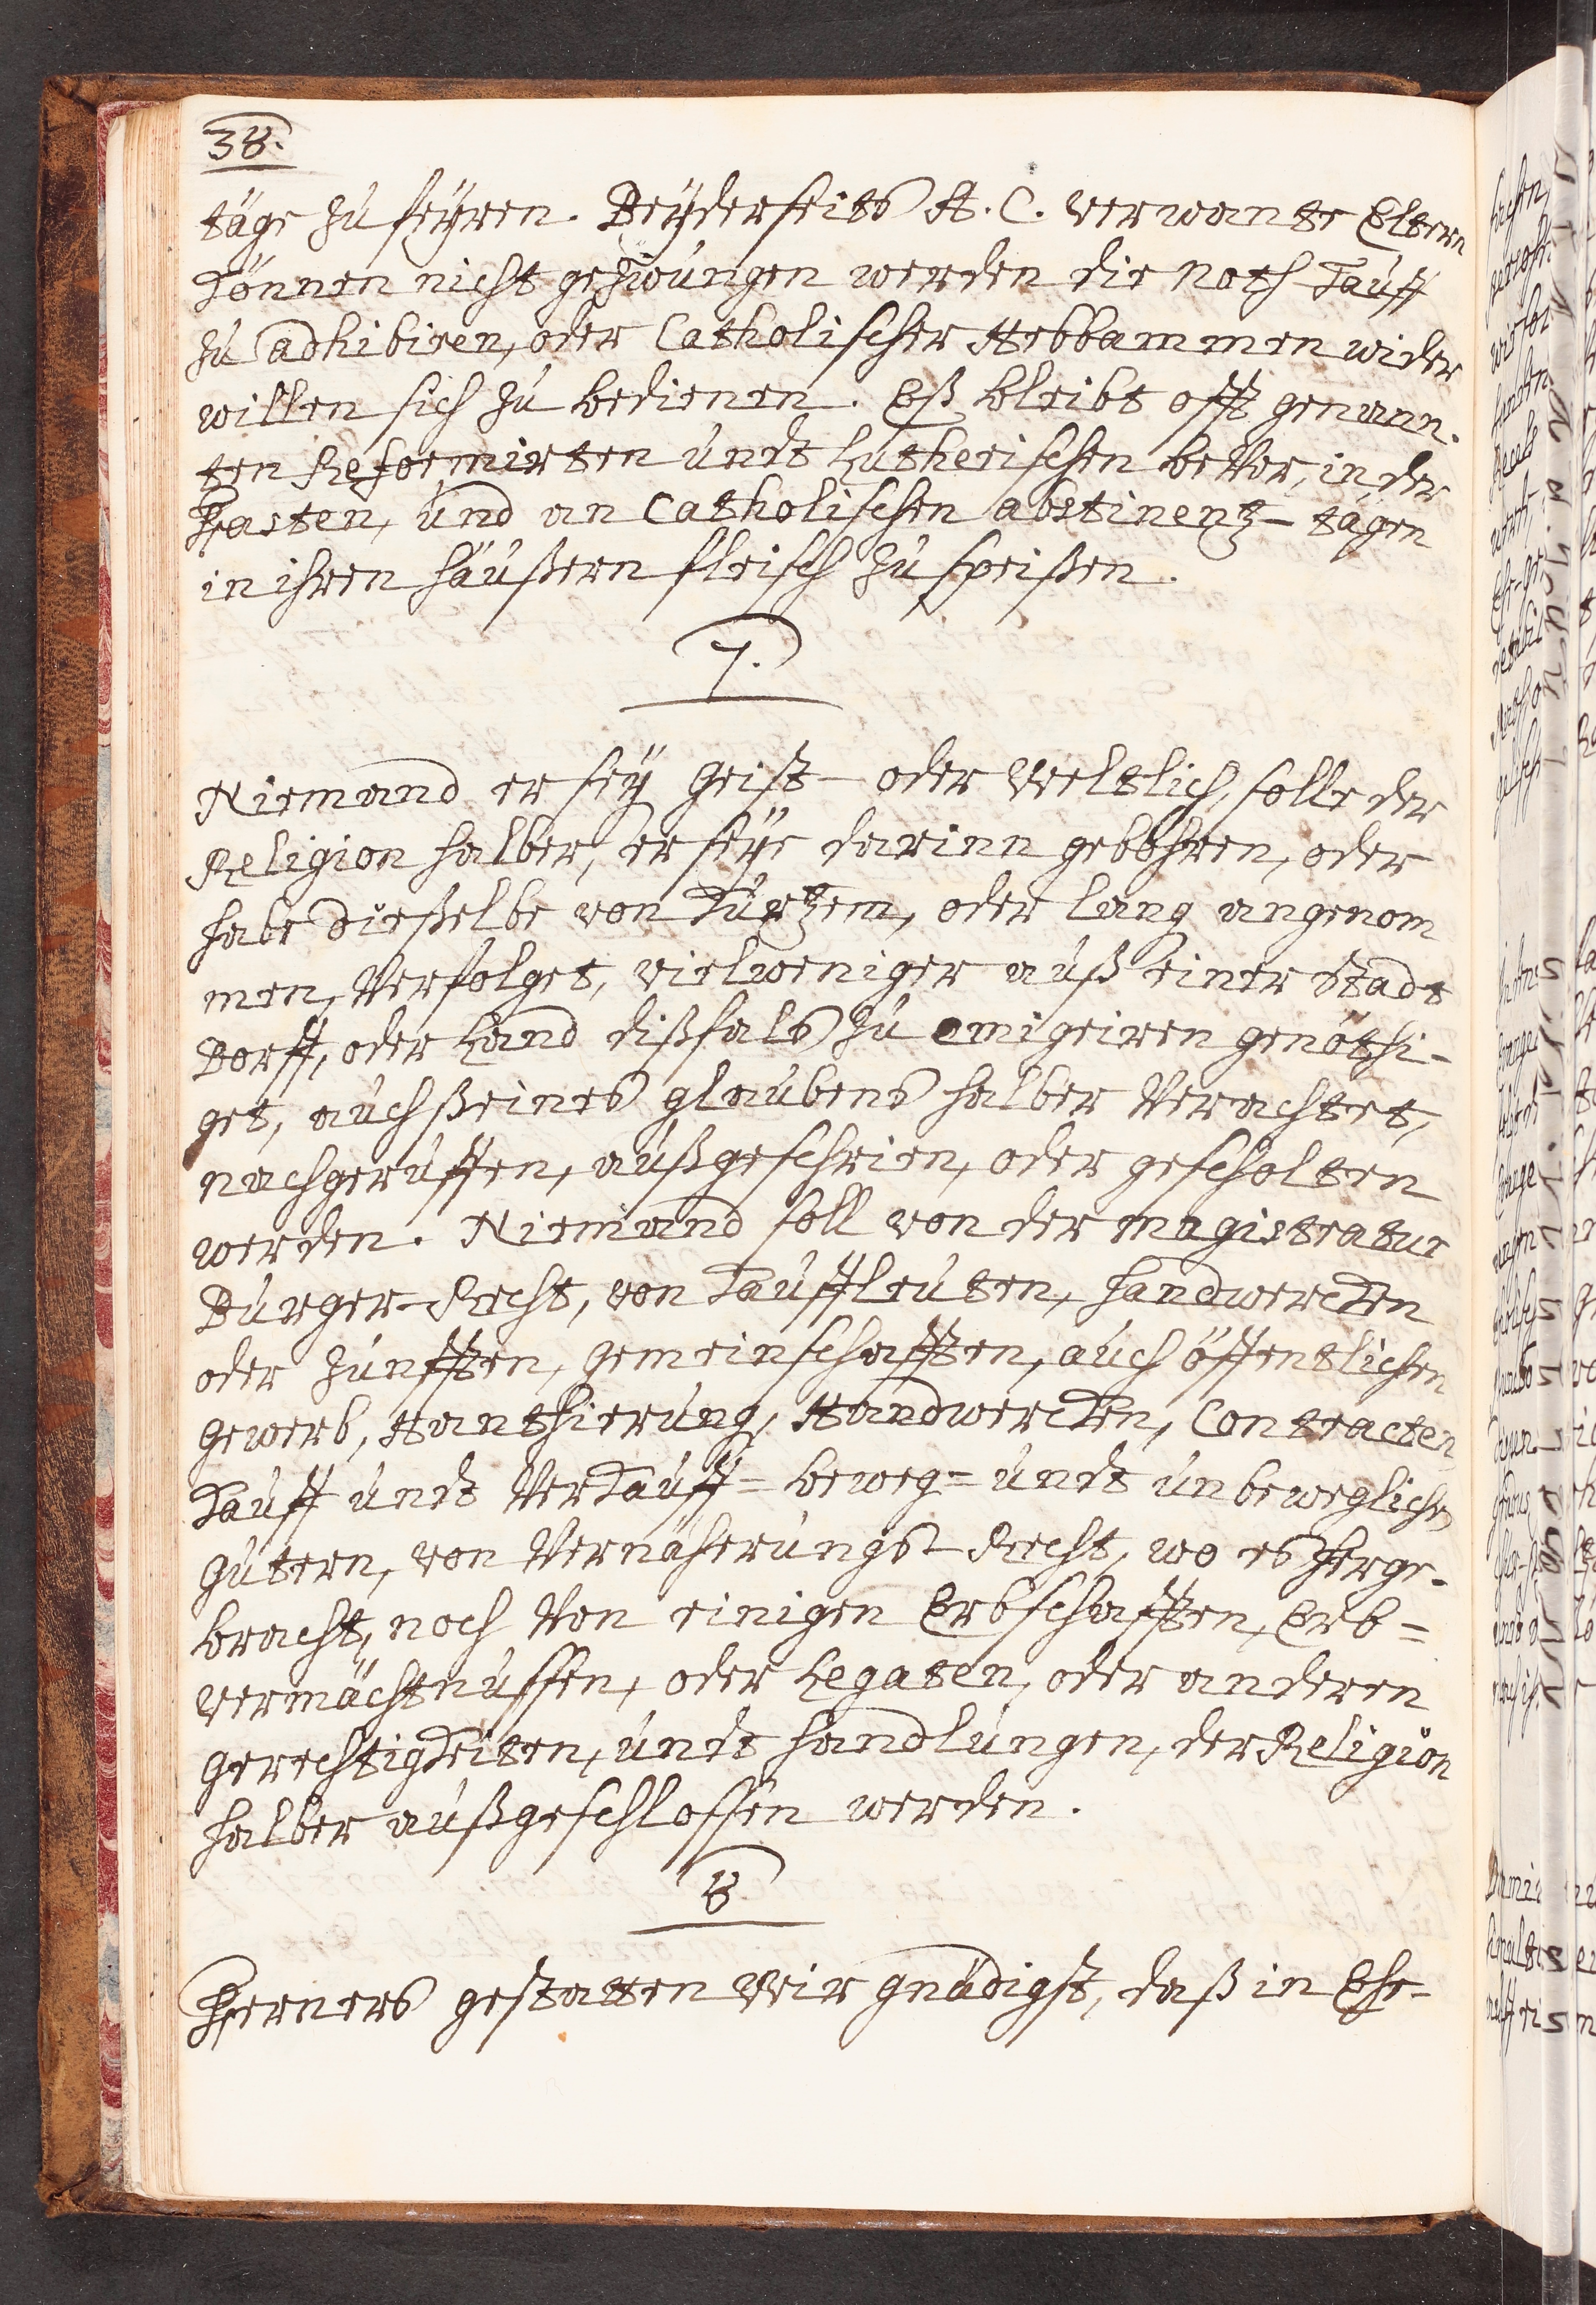 38.
täge zu feÿren. Beÿderseits A. C. verwante Eltern
können nicht gezwungen werden die Noth-Tauff
zu adhibiren, oder Catholischer Hebbammen wider
willen sich zu bedienen. Eß bleibt offt genann-
ten Reformirten undt Lutherischen beVor, in der
Fasten, und an Catholischen abstinentz-tägen
in ihren häußern fleisch zu speißen.
7.
Niemand er seÿ Geist- oder Weltlich, solle der
Religion halber, er seÿe darinn gebohren, oder
habe dießelbe von kurtzem, oder lang angenom
men, Verfolget, vielweniger auß einer Stadt
Dorff, oder Land dißfals zu emigriren genöthi-
get, auch ßeines glaubens halber Verachtet,
nachgeruffen, außgeschrien, oder gescholten
werden. Niemand soll von der magistratur
Burger-Recht, von Kauffleuten, handwercken
oder Zunfften, Gemeinschafften, auch öffentlichen
Gewerb, Hanthierung, Handwercken, Contracten
Kauff undt Verkauff= beweg= undt unbewegliche
Gütern, von Vernäherungs-Recht, wo es herge-
bracht, noch Von einigen Erbschafften, Erb=
vermächtnussen, oder Legaten, oder anderen
Gerechtigkeiten, undt handlungen, der Religion
halber außgeschlossen werden.
8
Ferners gestatten Wir gnädigst, daß in Ehe-